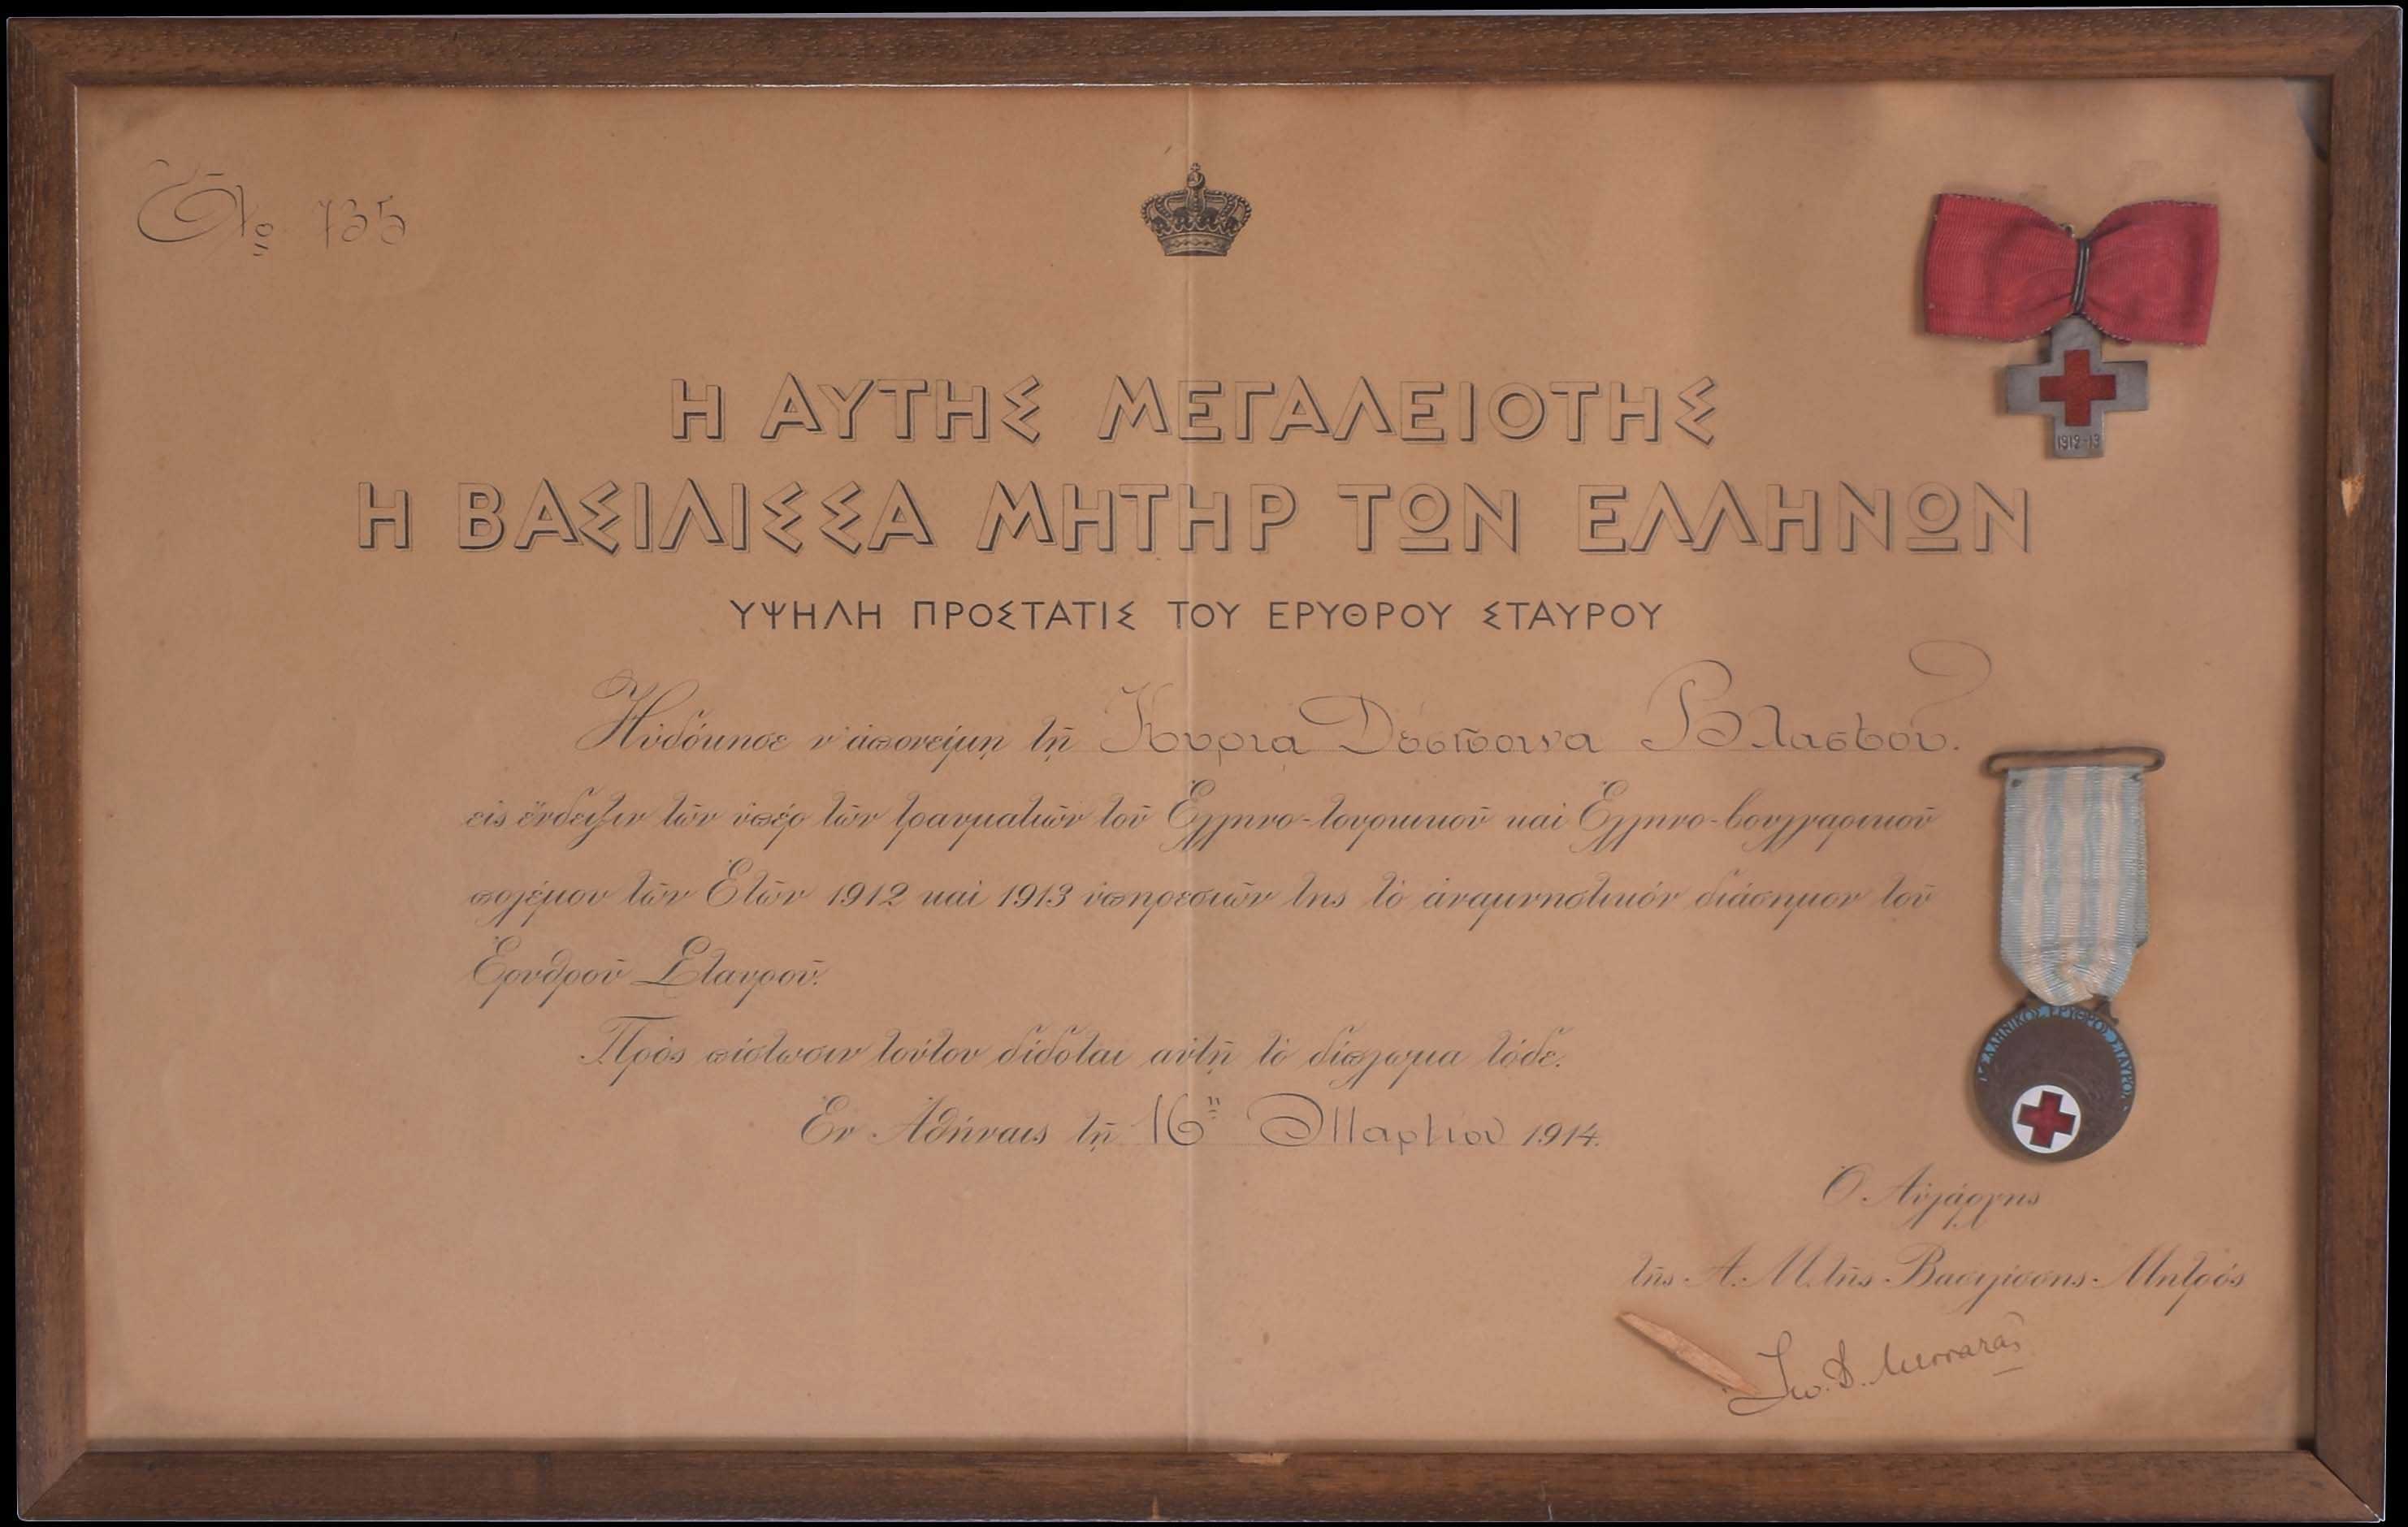 № 735
Η ΑΥΤΗΣ ΜΕΓΑΛΕΙΟΤΗΣ
Η ΒΑΣΙΛΙΣΣΑ ΜΗΤΗΡ ΤΩΝ ΕΛΛΗΝΩΝ
ΥΨΗΛΗ ΠΡΟΣΤΑΤΙΣ ΤΟΥ ΕΡΥΘΡΟΥ ΣΤΑΥΡΟΥ
1912-13
Ηὐδόκησε ν' ἀπονείμῃ τῇ Κυρια Δεσποινα Βλαστου.
εἰς ἔνδειξιν τῶν ὑπὲρ τῶν τραυματιῶν τοῦ Ἑλληνο-τουρκικοῦ καὶ Ἑλληνο-βουλγαρικοῦ
πολέμου τῶν Ἐτῶν 1912 καὶ 1913 ὑπηρεσιῶν της τὸ ἀναμνηστικόν διάσημον τοῦ
Ἐρυθροῦ Σταυροῦ.
Πρὸς πίστωσιν τούτου δίδοται αὐτῇ τὸ δίπλωμα τόδε.
Ἐν Ἀθήναις τῇ 16ῃ Μαρτιου 1914.
ΕΛΛΗΝΙΚΟΣ ΕΡΥΘΡΟΣ ΣΤΑΥΡΟΣ
Ὁ Αὐλάρχης
τῆς Α. Μ. τῆς Βασιλίσσης Μητρός